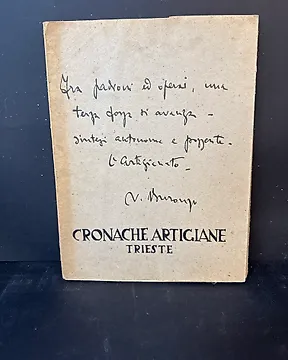 Fra padroni ed operai, una
terza forza si avanza -
sintesi autonoma e possente.
l'Artigianato.
V.
CRONACHE ARTIGIANE
TRIESTE